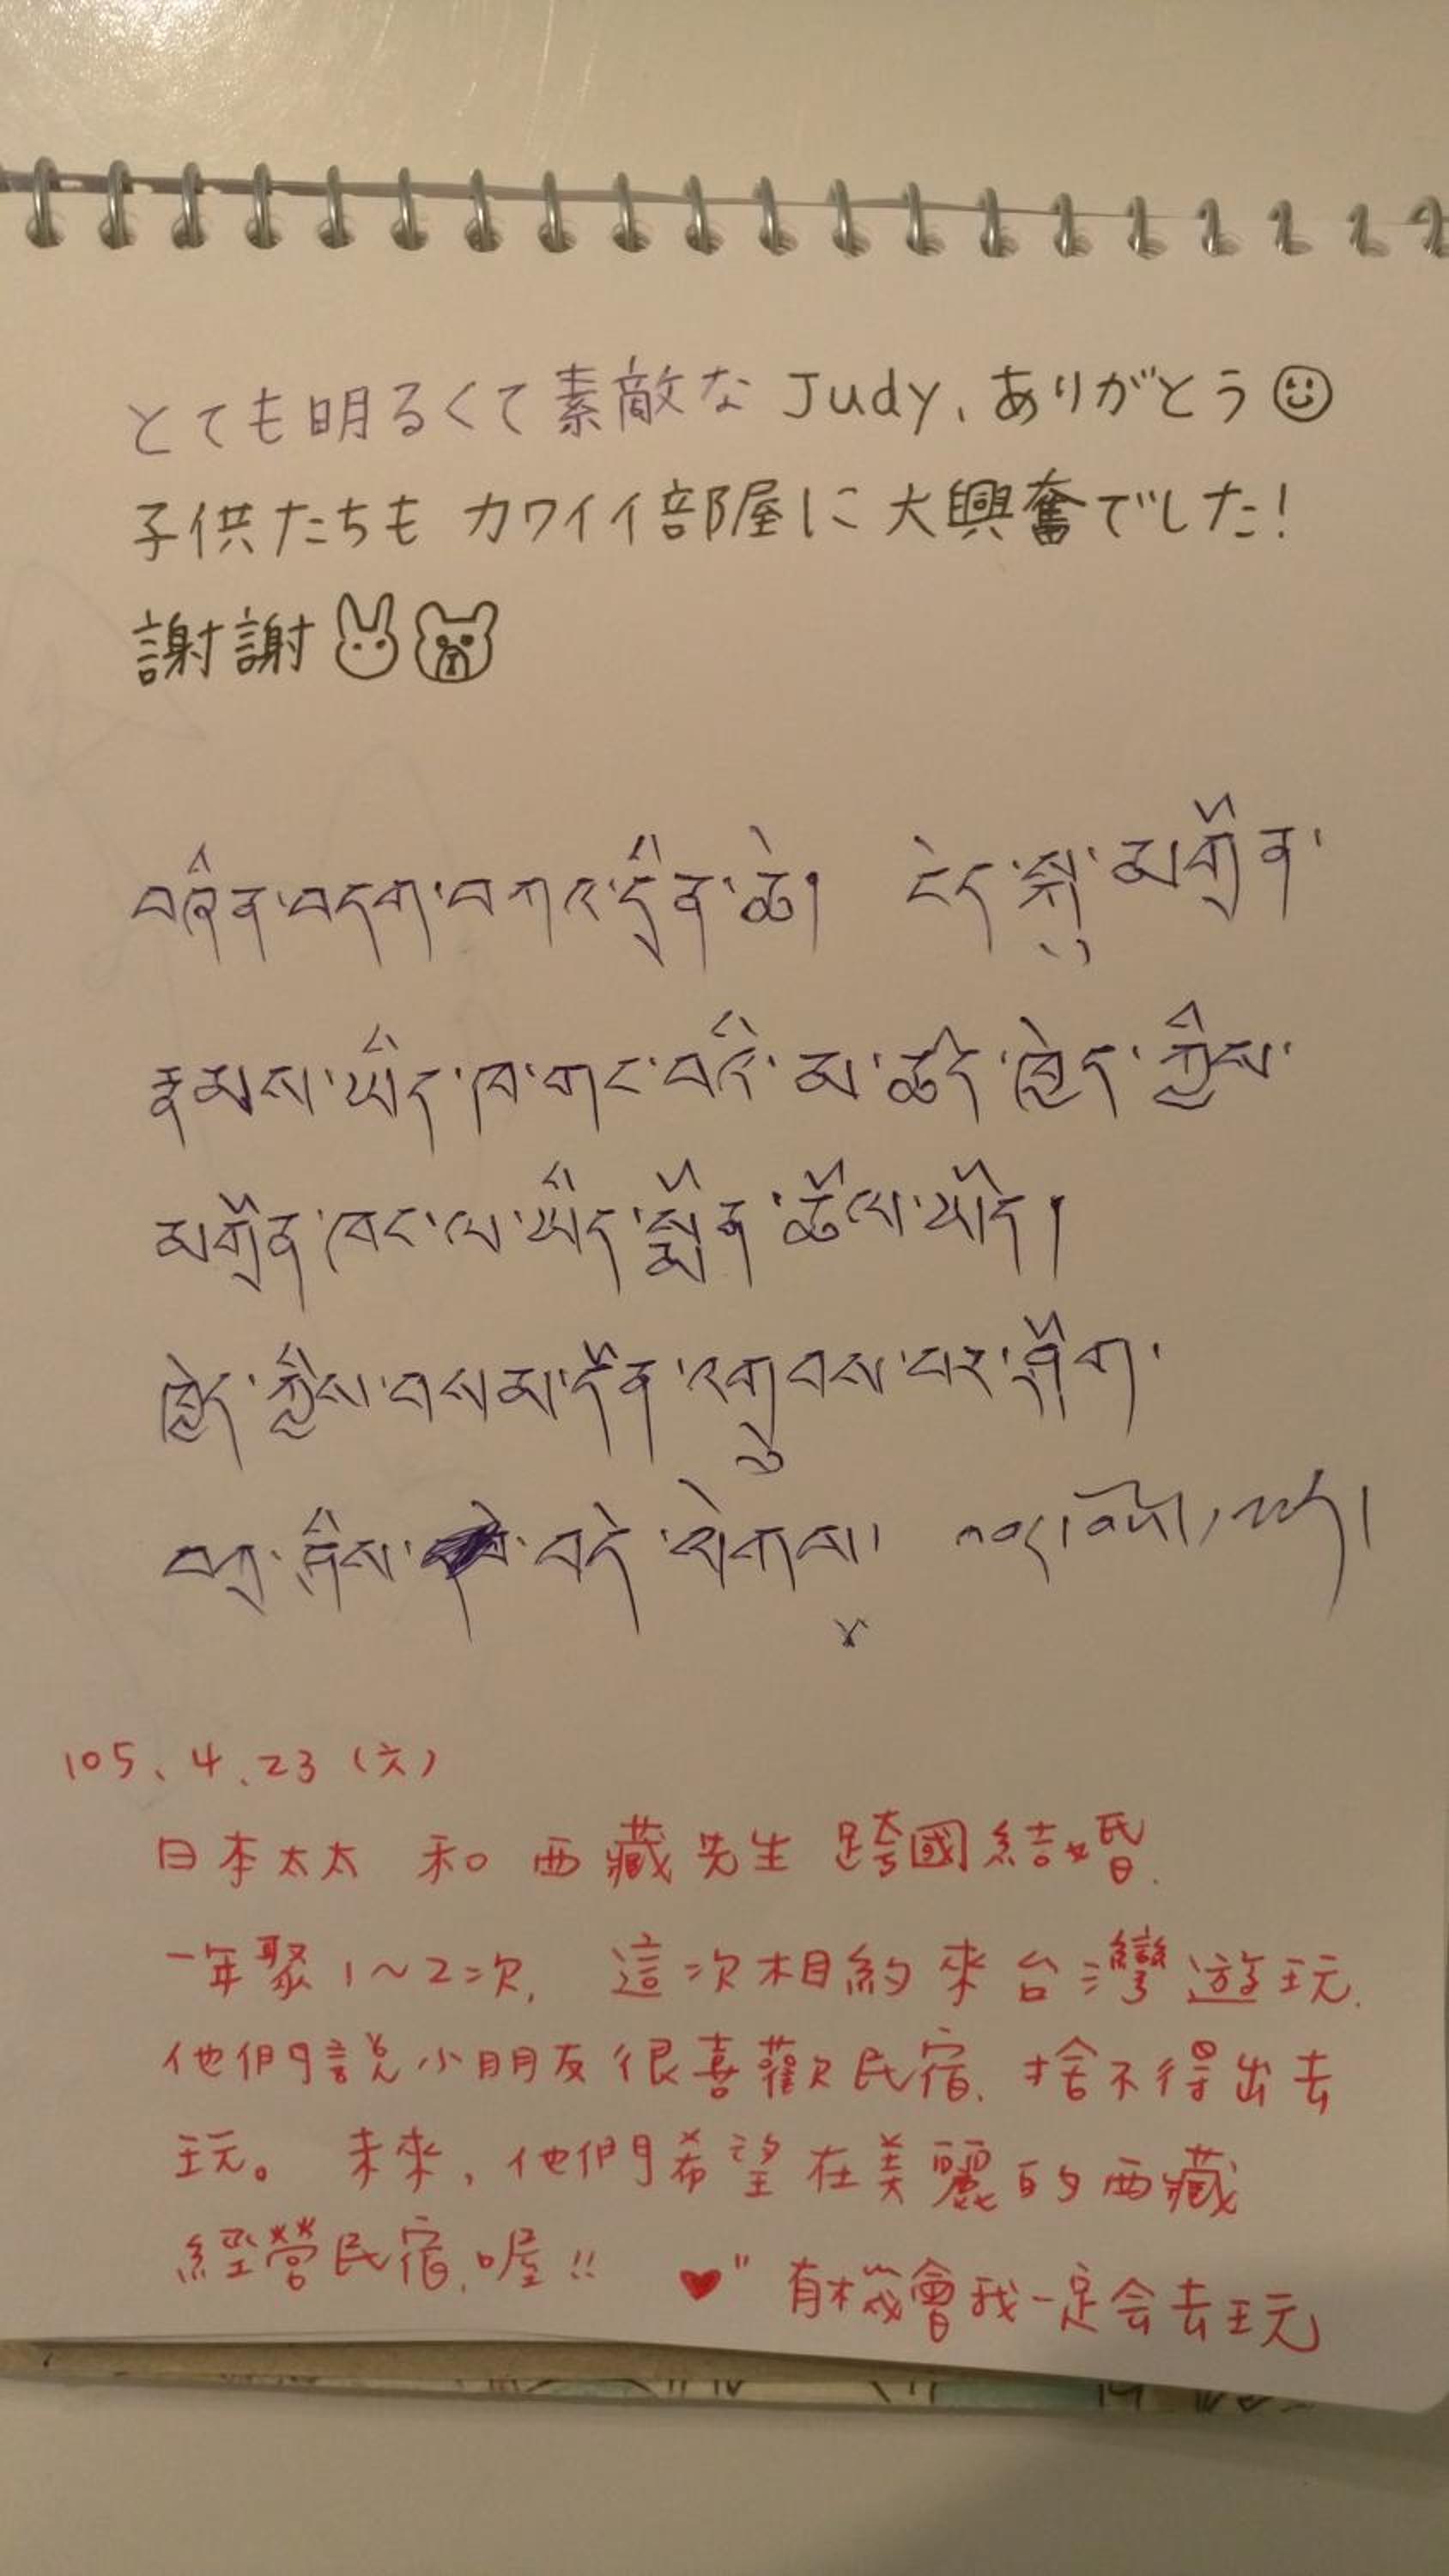 とても明るくて素敵な Judy、ありがとう
子供たちも カワイイ部屋に 大興奮でした！
謝謝
བཞིན་བདག་བཀའ་དྲིན་ཆེ། ངེད་སྐུ་མགྲོན་
རྣམས་ཡིད་ཁ་གང་བའི་མ་ཚད་ཁྱེད་ཀྱིས་
མགྲོན་ཁང་ལ་ཡིད་སྨོན་ཆོལ་ཡོད།
ཁྱེད་ཀྱིས་བསམ་དོན་འགྲུབས་པར་ཤོག་
བཀྲ་ཤིས་བདེ་ལེགས།
105、4、23（六）
日本太太 和 西藏先生 跨國結婚.
一年聚 1～2次, 這次相約來台灣遊玩.
他們說小朋友很喜歡民宿. 捨不得出去
玩。 未來，他們希望在美麗的西藏
經營民宿.喔!! ♥" 有機會我一定会去玩